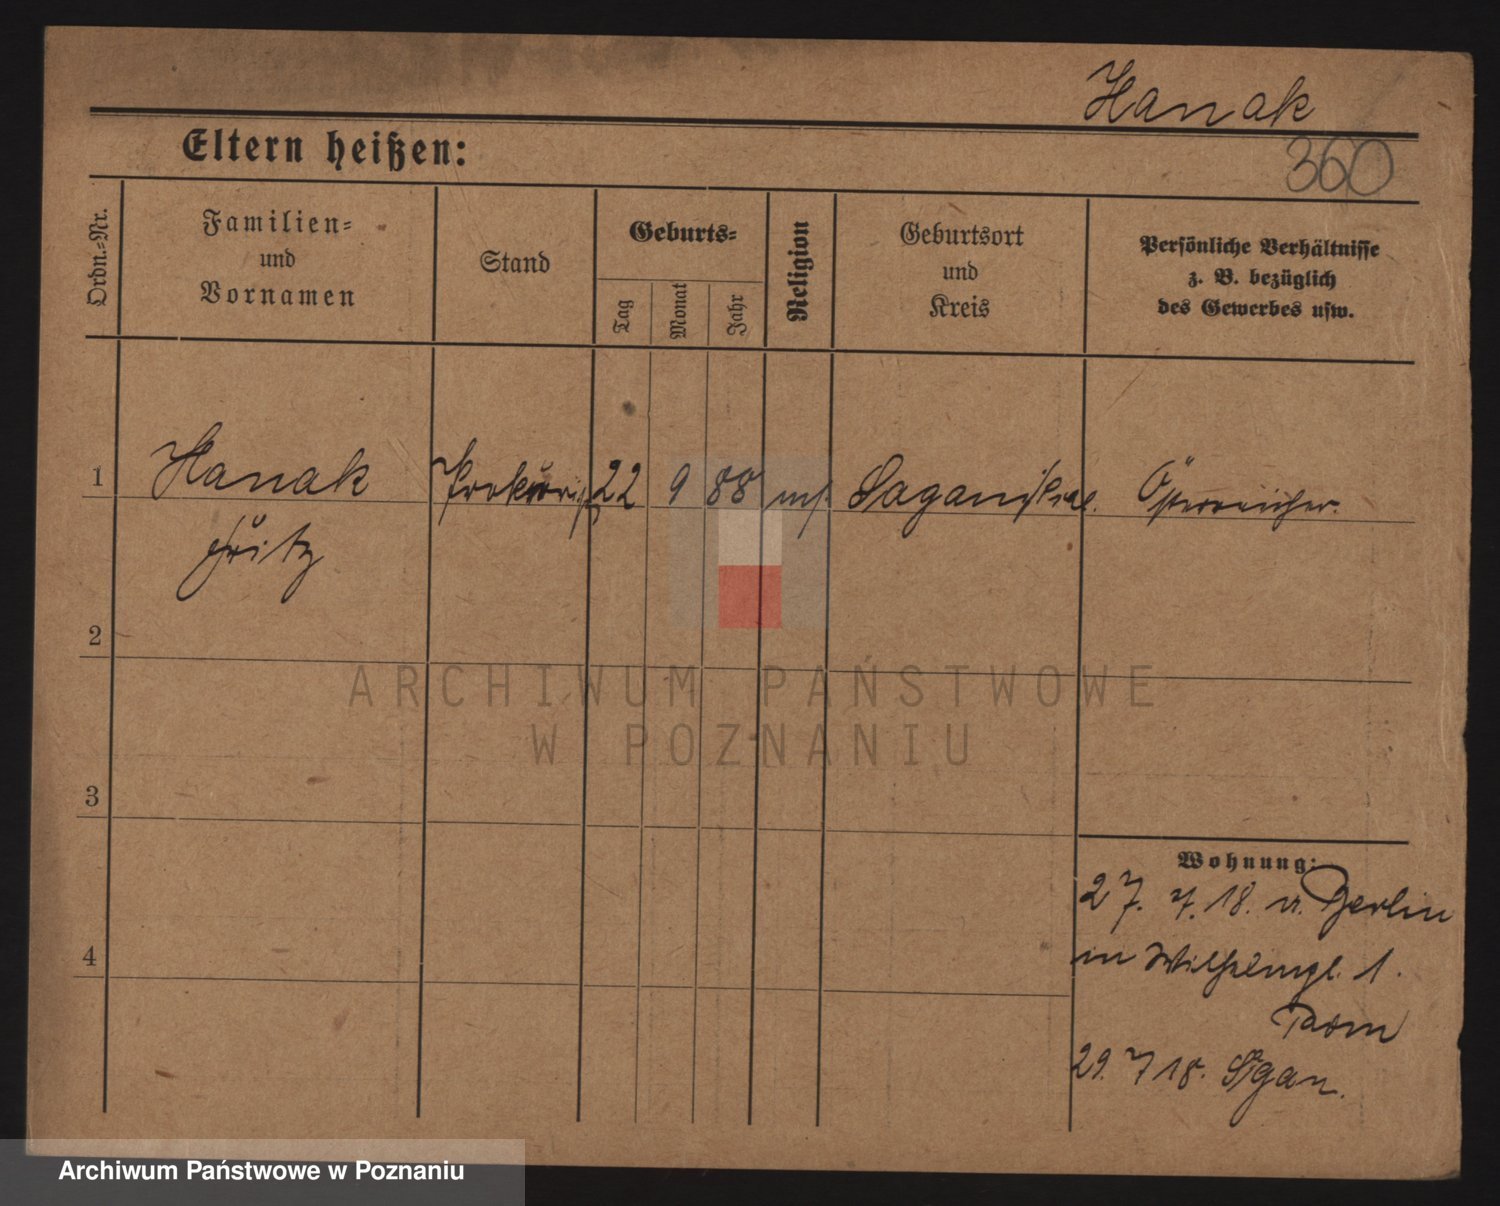 Hanak
360
Eltern heißen:
Ordn.-Nr.
Familien-
und
Vornamen
Stand
Geburts-
Tag
Monat
Jahr
Religion
Geburtsort
und
Kreis
Persönliche Verhältnisse
z. B. bezüglich
des Gewerbes usw.
1
Hanak
Fritz
Prokurist
22
9
88
Österreicher.
2
3
4
Wohnung:
27. 7. 18. v. Berlin
in Wilhelmpl. 1.
29. 7 18.
ARCHIWUM PAŃSTWOWE
W POZNANIU
Archiwum Państwowe w Poznaniu